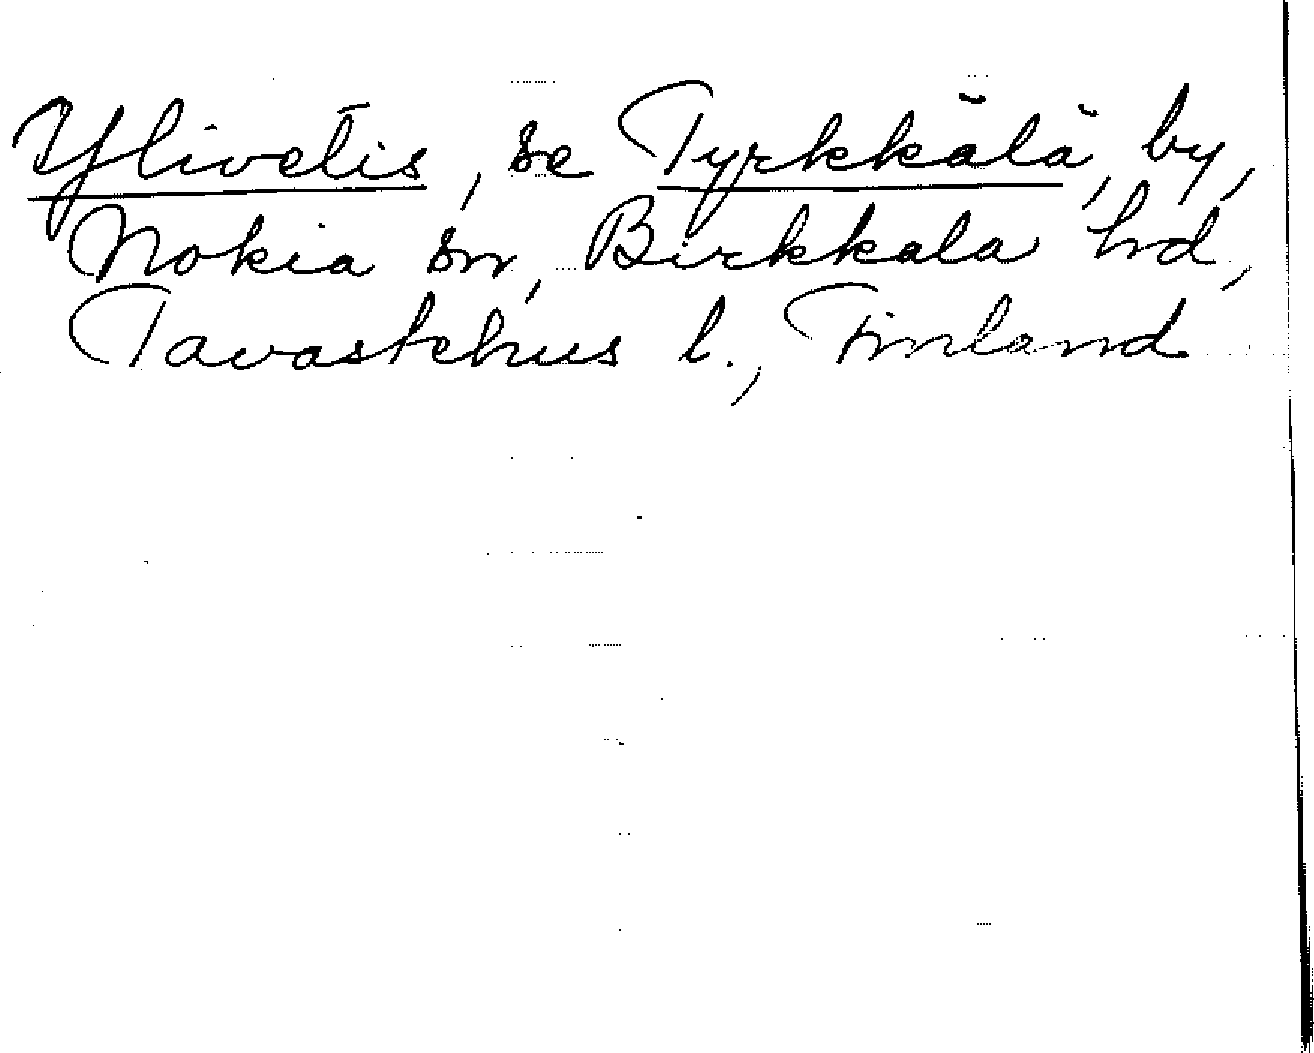 Ylivetis, se Tyrkkälä, by,
Nokia sn, Birkkala hd,
Tavastehus l., Finland